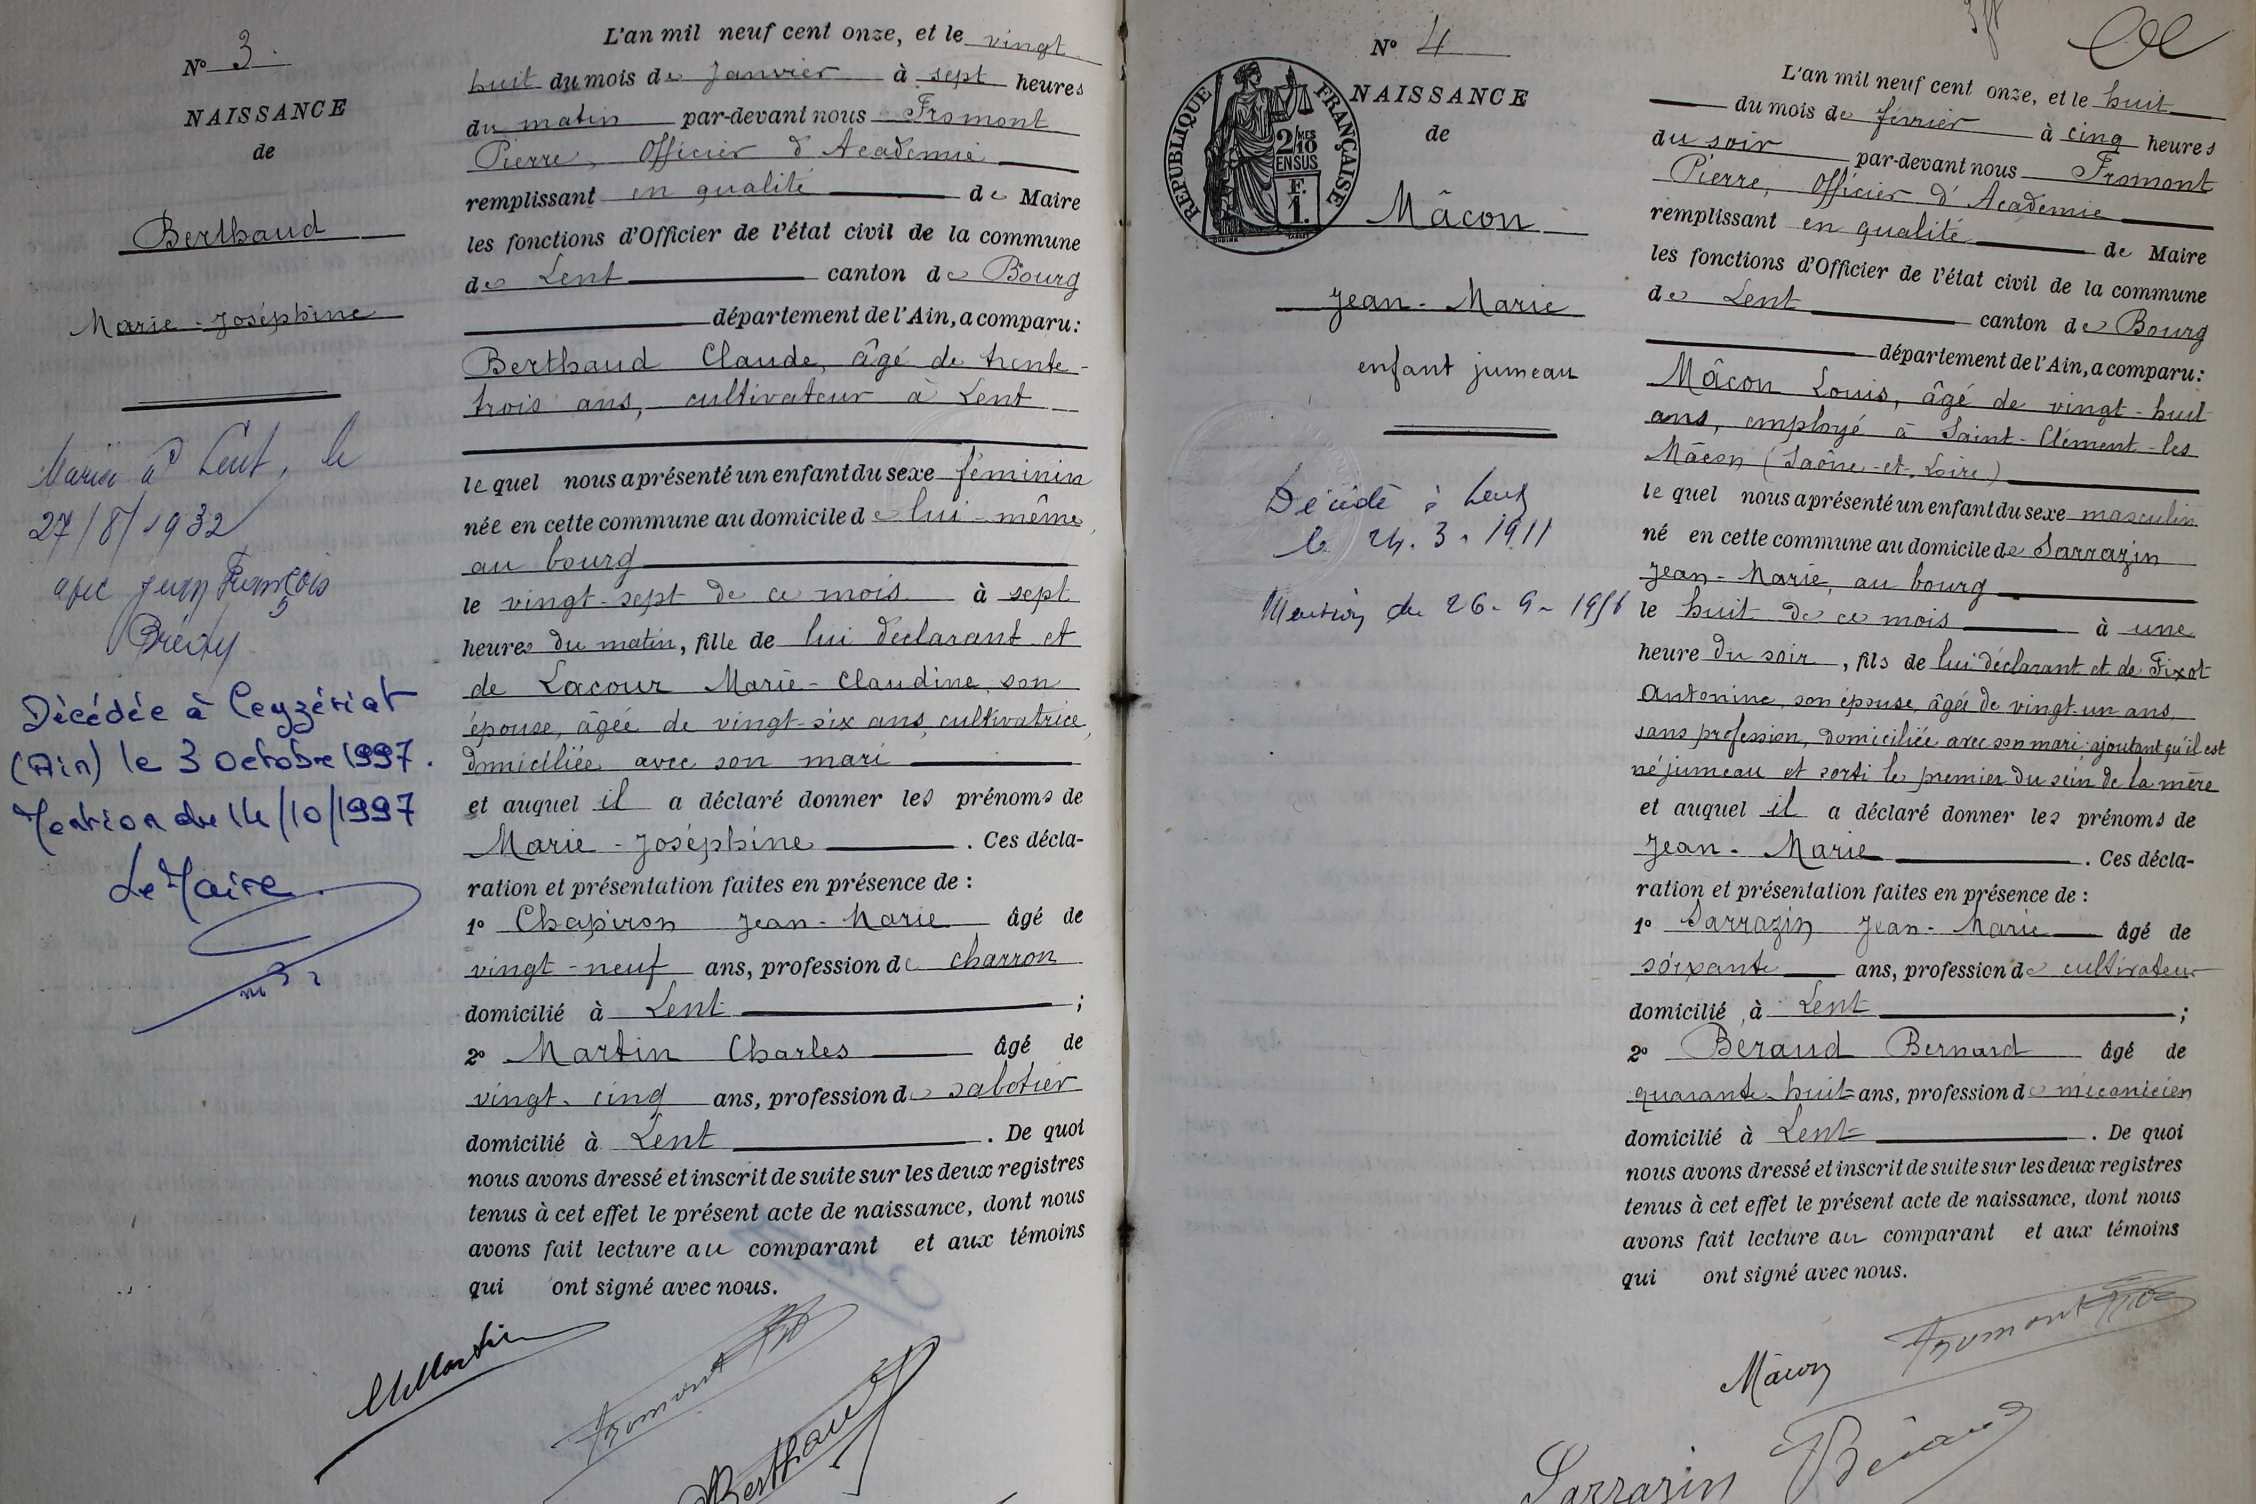 N° 3.
NAISSANCE
de
Berthaud
Marie-Joséphine
Mariée à Lent, le
27/8/1932
avec Jean François
Décédée à Ceyzériat
(Ain) le 3 Octobre 1997.
Mention du 14/10/1997
Le Maire
L'an mil neuf cent onze, et le vingt
huit du mois de Janvier à sept heures
du matin par-devant nous Fromont
Pierre, Officier d'Academie
remplissant en qualité de Maire
les fonctions d'Officier de l'état civil de la commune
de Lent canton de Bourg
département de l'Ain, a comparu :
Berthaud Claude, âgé de trente-
trois ans, cultivateur à Lent
lequel nous a présenté un enfant du sexe féminin
née en cette commune au domicile de lui-même,
au bourg
le vingt-sept de ce mois à sept
heures du matin, fille de lui déclarant et
de Lacour Marie-Claudine, son
épouse, âgée de vingt-six ans, cultivatrice,
domiciliée avec son mari
et auquel il a déclaré donner les prénoms de
Marie-Joséphine . Ces décla-
ration et présentation faites en présence de :
1° Chapiron Jean-Marie âgé de
vingt-neuf ans, profession de charron
domicilié à Lent ;
2° Martin Charles âgé de
vingt-cinq ans, profession de sabotier
domicilié à Lent . De quoi
nous avons dressé et inscrit de suite sur les deux registres
tenus à cet effet le présent acte de naissance, dont nous
avons fait lecture au comparant et aux témoins
qui ont signé avec nous.
Ch Martin
Fromont
Berthaud
N° 4
NAISSANCE
de
RÉPUBLIQUE FRANÇAISE
2/10 MES
EN SUS
F.
1.
Mâcon
Jean-Marie
enfant jumeau
Décédé à Lent
le 24.3.1911
Mention du 26-9-1956
L'an mil neuf cent onze, et le huit
du mois de février à cinq heures
du soir par-devant nous Fromont
Pierre, Officier d'Academie
remplissant en qualité de Maire
les fonctions d'Officier de l'état civil de la commune
de Lent canton de Bourg
département de l'Ain, a comparu :
Mâcon Louis, âgé de vingt-huit
ans, employé à Saint-Clément-les
Mâcon (Saône-et-Loire)
lequel nous a présenté un enfant du sexe masculin
né en cette commune au domicile de Sarrazin
Jean-Marie, au bourg
le huit de ce mois à une
heure du soir, fils de lui déclarant et de Fixot
Antonine, son épouse, âgée de vingt-un ans,
sans profession, domiciliée avec son mari ajoutant qu'il est
né jumeau et sorti le premier du sein de la mère
et auquel il a déclaré donner les prénoms de
Jean-Marie . Ces décla-
ration et présentation faites en présence de :
1° Sarrazin Jean-Marie âgé de
soixante ans, profession de cultivateur
domicilié à Lent ;
2° Béraud Bernard âgé de
quarante-huit ans, profession de mécanicien
domicilié à Lent . De quoi
nous avons dressé et inscrit de suite sur les deux registres
tenus à cet effet le présent acte de naissance, dont nous
avons fait lecture au comparant et aux témoins
qui ont signé avec nous.
Mâcon Fromont
Sarrazin Béraud